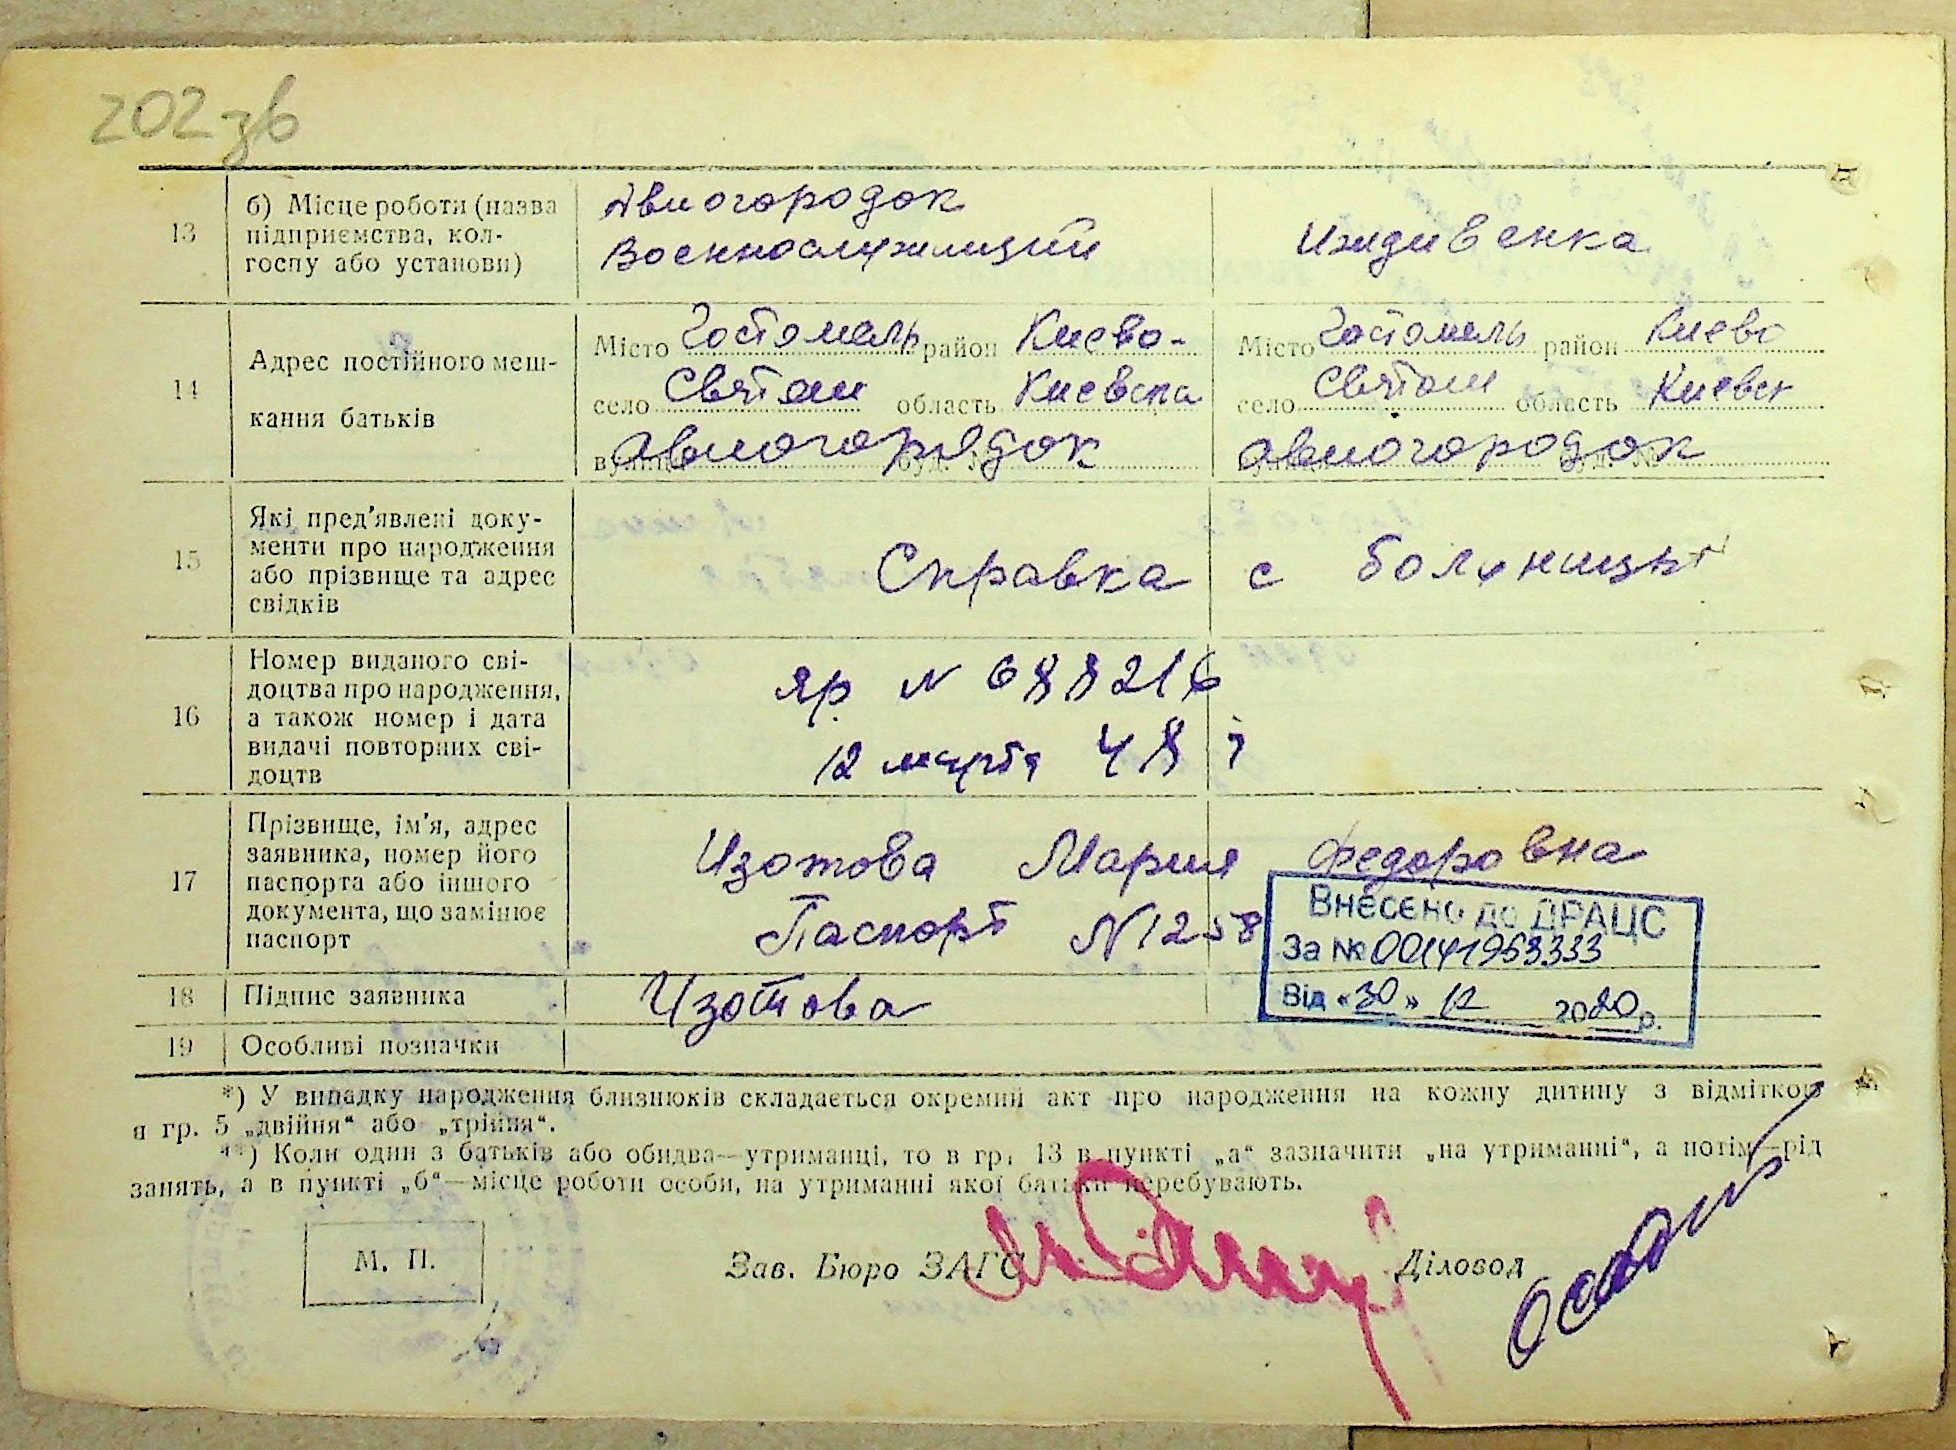 202 зв
13
б) Місце роботи (назва
підприємства, кол-
госпу або установи)
Авиогородок
Военнослужищий
Иждивенка
14
Адрес постійного меш-
кання батьків
Місто Гостомель район Киево-
село Святош область Киевска
вулиця Авиогородок буд. №
Місто Гостомель район Киево
село Святош область Киевск
вулиця авиогородок буд. №
15
Які пред'явлені доку-
менти про народження
або прізвище та адрес
свідків
Справка с больницы
16
Номер виданого сві-
доцтва про народження,
а також номер і дата
видачі повторних сві-
доцтв
яр N 688216
12 марта 48 г
17
Прізвище, ім'я, адрес
заявника, номер його
паспорта або іншого
документа, що замінює
паспорт
Изотова Мария Федоровна
Паспорт N 1258
Внесено до ДРАЦС
За № 00141953333
Від «30» 12 2020 р.
18
Підпис заявника
Изотова
19
Особливі позначки
*) У випадку народження близнюків складається окремий акт про народження на кожну дитину з відміткою
в гр. 5 „двійня“ або „трійня“.
**) Коли один з батьків або обидва—утриманці, то в гр. 13 в пункті „а“ зазначити „на утриманні“, а потім—рід
занять, а в пункті „б“—місце роботи особи, на утриманні якої батьки перебувають.
М. П.
Зав. Бюро ЗАГС
Діловод